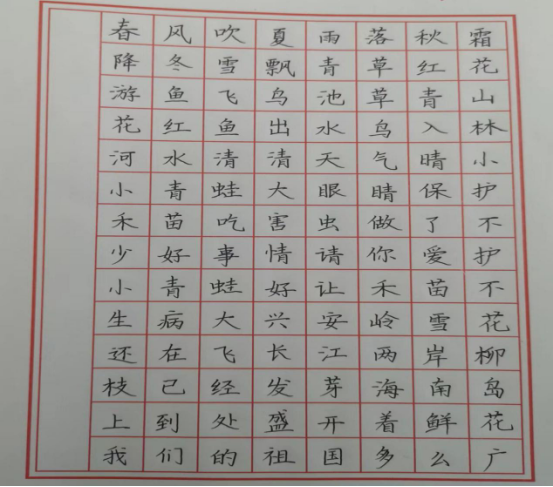 春风吹夏雨落秋霜
降冬雪飘青草红花
游鱼飞鸟池草青山
花红鱼出水鸟入林
河水清清天气晴小
小青蛙大眼睛保护
禾苗吃害虫做了不
少好事情请你爱护
小青蛙好让禾苗不
生病大兴安岭雪花
还在飞长江两岸柳
枝已经发芽海南岛
上到处盛开着鲜花
我们的祖国多么广